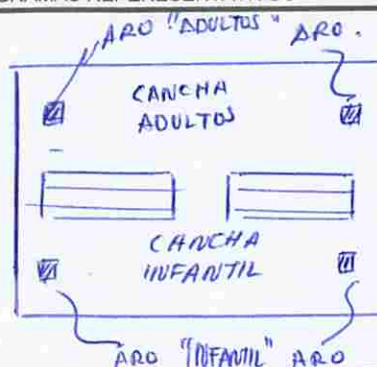 ARO "ADULTOS" ARO.
CANCHA
ADULTOS
CANCHA
INFANTIL
ARO "INFANTIL" ARO